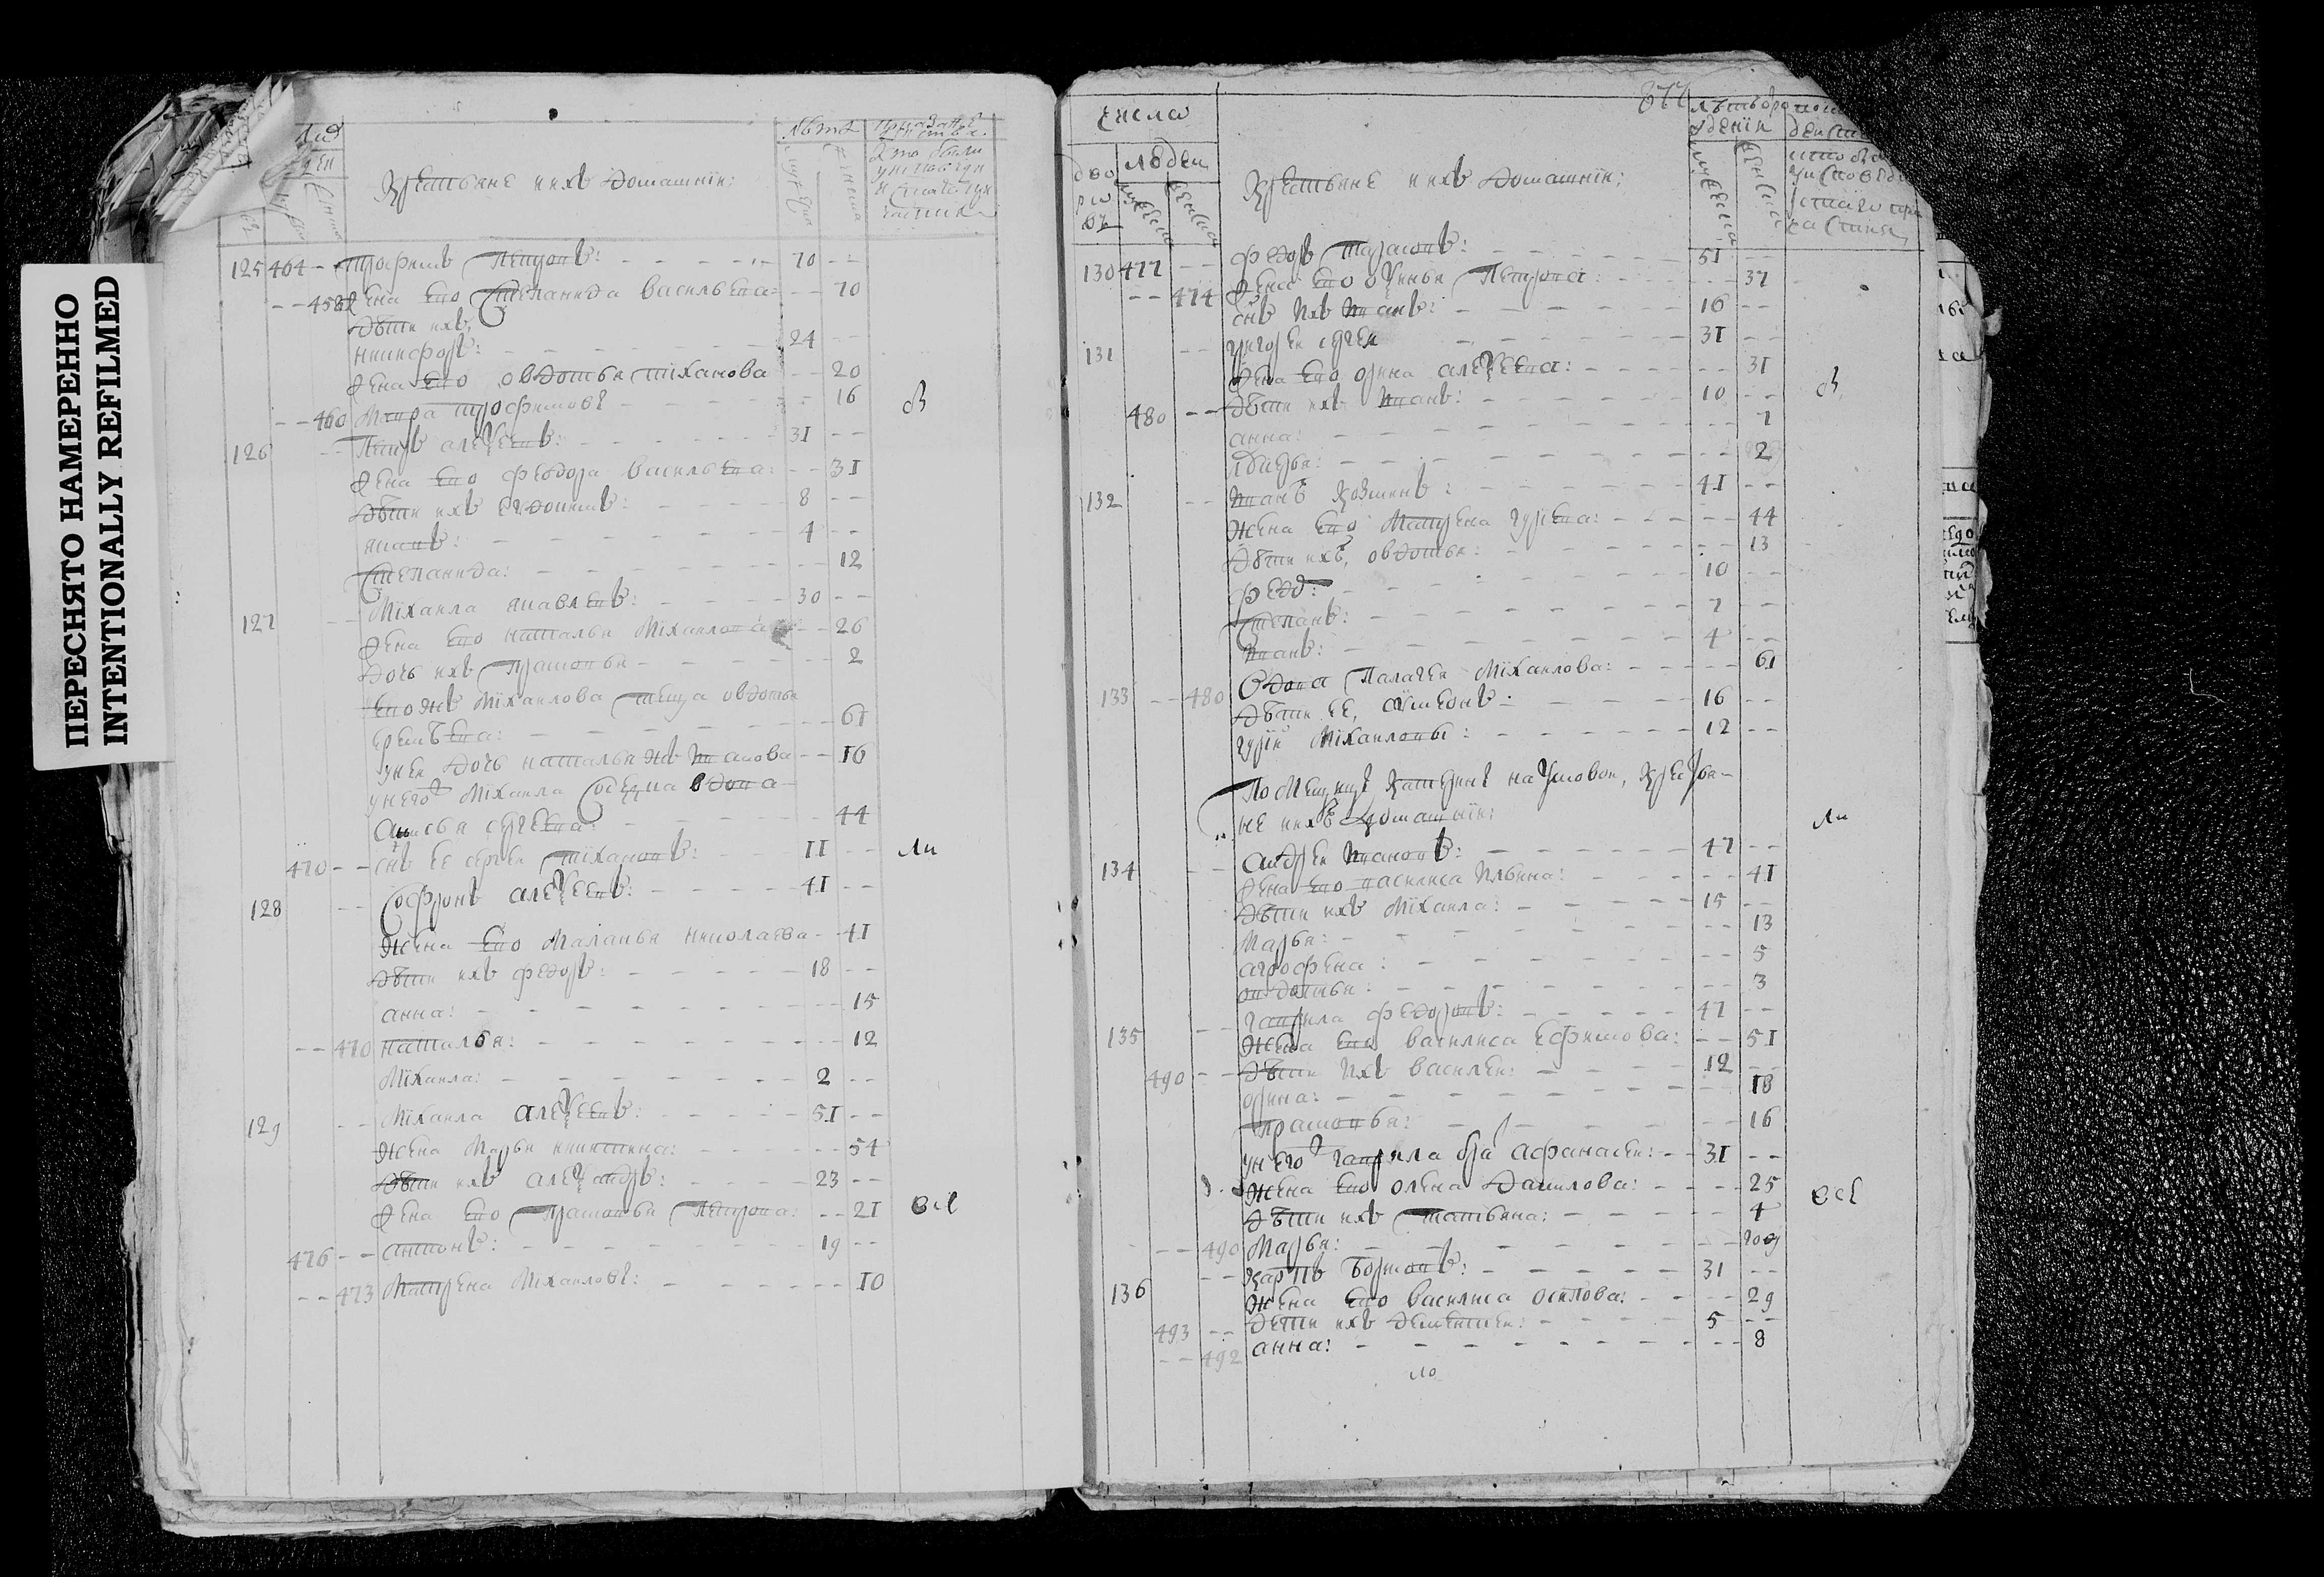 ПЕРЕСНЯТО НАМЕРЕННО
INTENTIONALLY REFILMED
Крестьяне и ихъ домашнїи:
125 464 -- Трофимъ Петровъ: 70 --
-- 458 Жена ево Степанида Васильева -- 70
Дѣти ихъ,
Никифоръ: 24 --
Жена ево Овдотья Тїханова -- 20
-- 460 Мавра Трофимовы -- 16
в
126 -- Петръ Алеѯеевъ: 31 --
Жена ево Феодора Васильева: -- 31
Дѣти ихъ Евдокимъ: 8 --
Яковъ: 4 --
Степанида: -- 12
127 -- Мїхаила Яковлевъ: 30 --
Жена ево Наталья Мїхаилова -- 26
Дочь ихъ Прасковья -- 2
ево жъ Мїхаилова теща Овдотья
Еремѣева: -- 67
у неи дочь Наталья жъ Иванова -- 16
у него Мїхаила вдова
сергеева: -- 44
470 -- снъ ее Сергеи Тїхановъ: 11 -- ли
128 -- Софронъ Алеѯеевъ: 41 --
Жена ево Маланья Николаева -- 41
дѣти ихъ Федоръ: 18 --
Анна: -- 15
-- 470 Наталья: -- 12
Мїхаила: 2 --
129 -- Мїхаила Алеѯеевъ: 51 --
Жена Марья Никитина: -- 54
дѣти ихъ Алеѯандръ: 23 --
Жена ево Прасковья Петрова: -- 21 все
476 -- Антонъ: 19 --
-- 473 Матрена Мїхаиловы: -- 10
числа
дво
ро
въ
людеи
Крестьяне и ихъ домашнїи;
130 477 -- Федоръ Тарасовъ: 51 --
-- 474 Жена ево Оѯинья Петрова: -- 37
снъ ихъ Иванъ: 16 --
131 -- Григореи Сергеи 31 --
Жена ево Орина Алеѯеева: -- 31
480 -- дѣти ихъ Иванъ: 10 -- в
Анна: -- 7
-- 2
132 -- Иванъ Козминъ: 41 --
Жена ево Матрена Гурева: -- 44
Дѣти ихъ, Овдотья: -- 13
Федо: 10 --
Степанъ: 7 --
Иванъ: 4 --
133 -- 480 Вдова Палагея Мїхаилова: -- 61
дѣти ее, Сѵмеонъ: 16 --
Гурїи Мїхаиловы: 12 --
Помещицы Катерины Наумовои, крестья-
не и ихъ домашнїи:
ли
134 -- Андреи Ивановъ: 47 --
Жена ево Василиса Ильина: -- 41
дѣти ихъ Мїхаила: 15 --
Марья: -- 13
Агрофена: -- 5
Овдотья: -- 3
135 -- Гаврила Федоровъ: 47 --
Жена ево Василиса Ефимова: -- 51
490 -- дѣти ихъ Василеи: 12 --
Орина: -- 18
Прасковья: -- 16
у него Гаврила бра Афанасеи: 31 --
Жена ево Олена Данилова: -- 25
дѣти ихъ Татьяна: -- 4
все
-- 490 Марья: -- год
136 -- Карпъ Борисовъ: 31 --
Жена ево Василиса Осипова: -- 29
493 -- дети ихъ Дементеи: 5 --
-- 492 Анна: -- 8